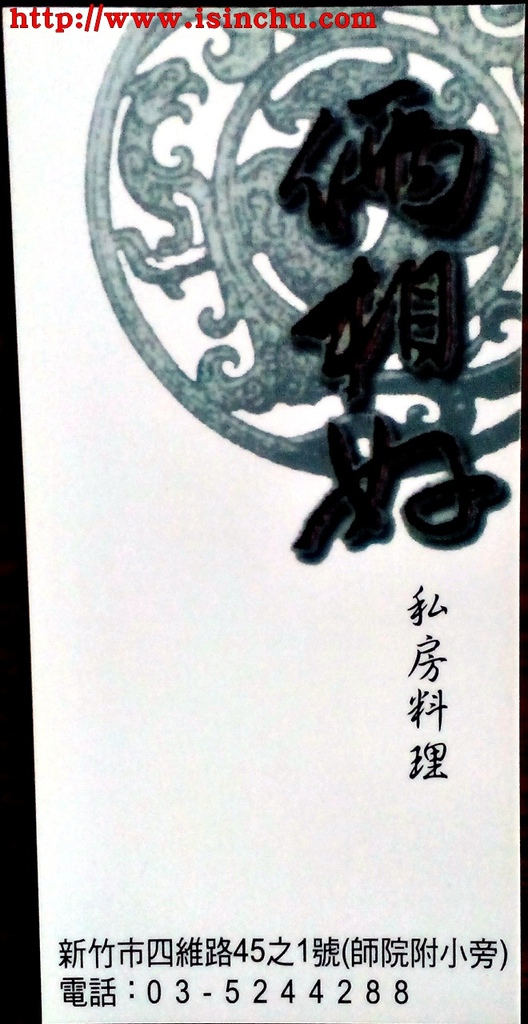 http://www.isinchu.com
倆相好
私房料理
新竹市四維路45之1號(師院附小旁)
電話：03-5244288